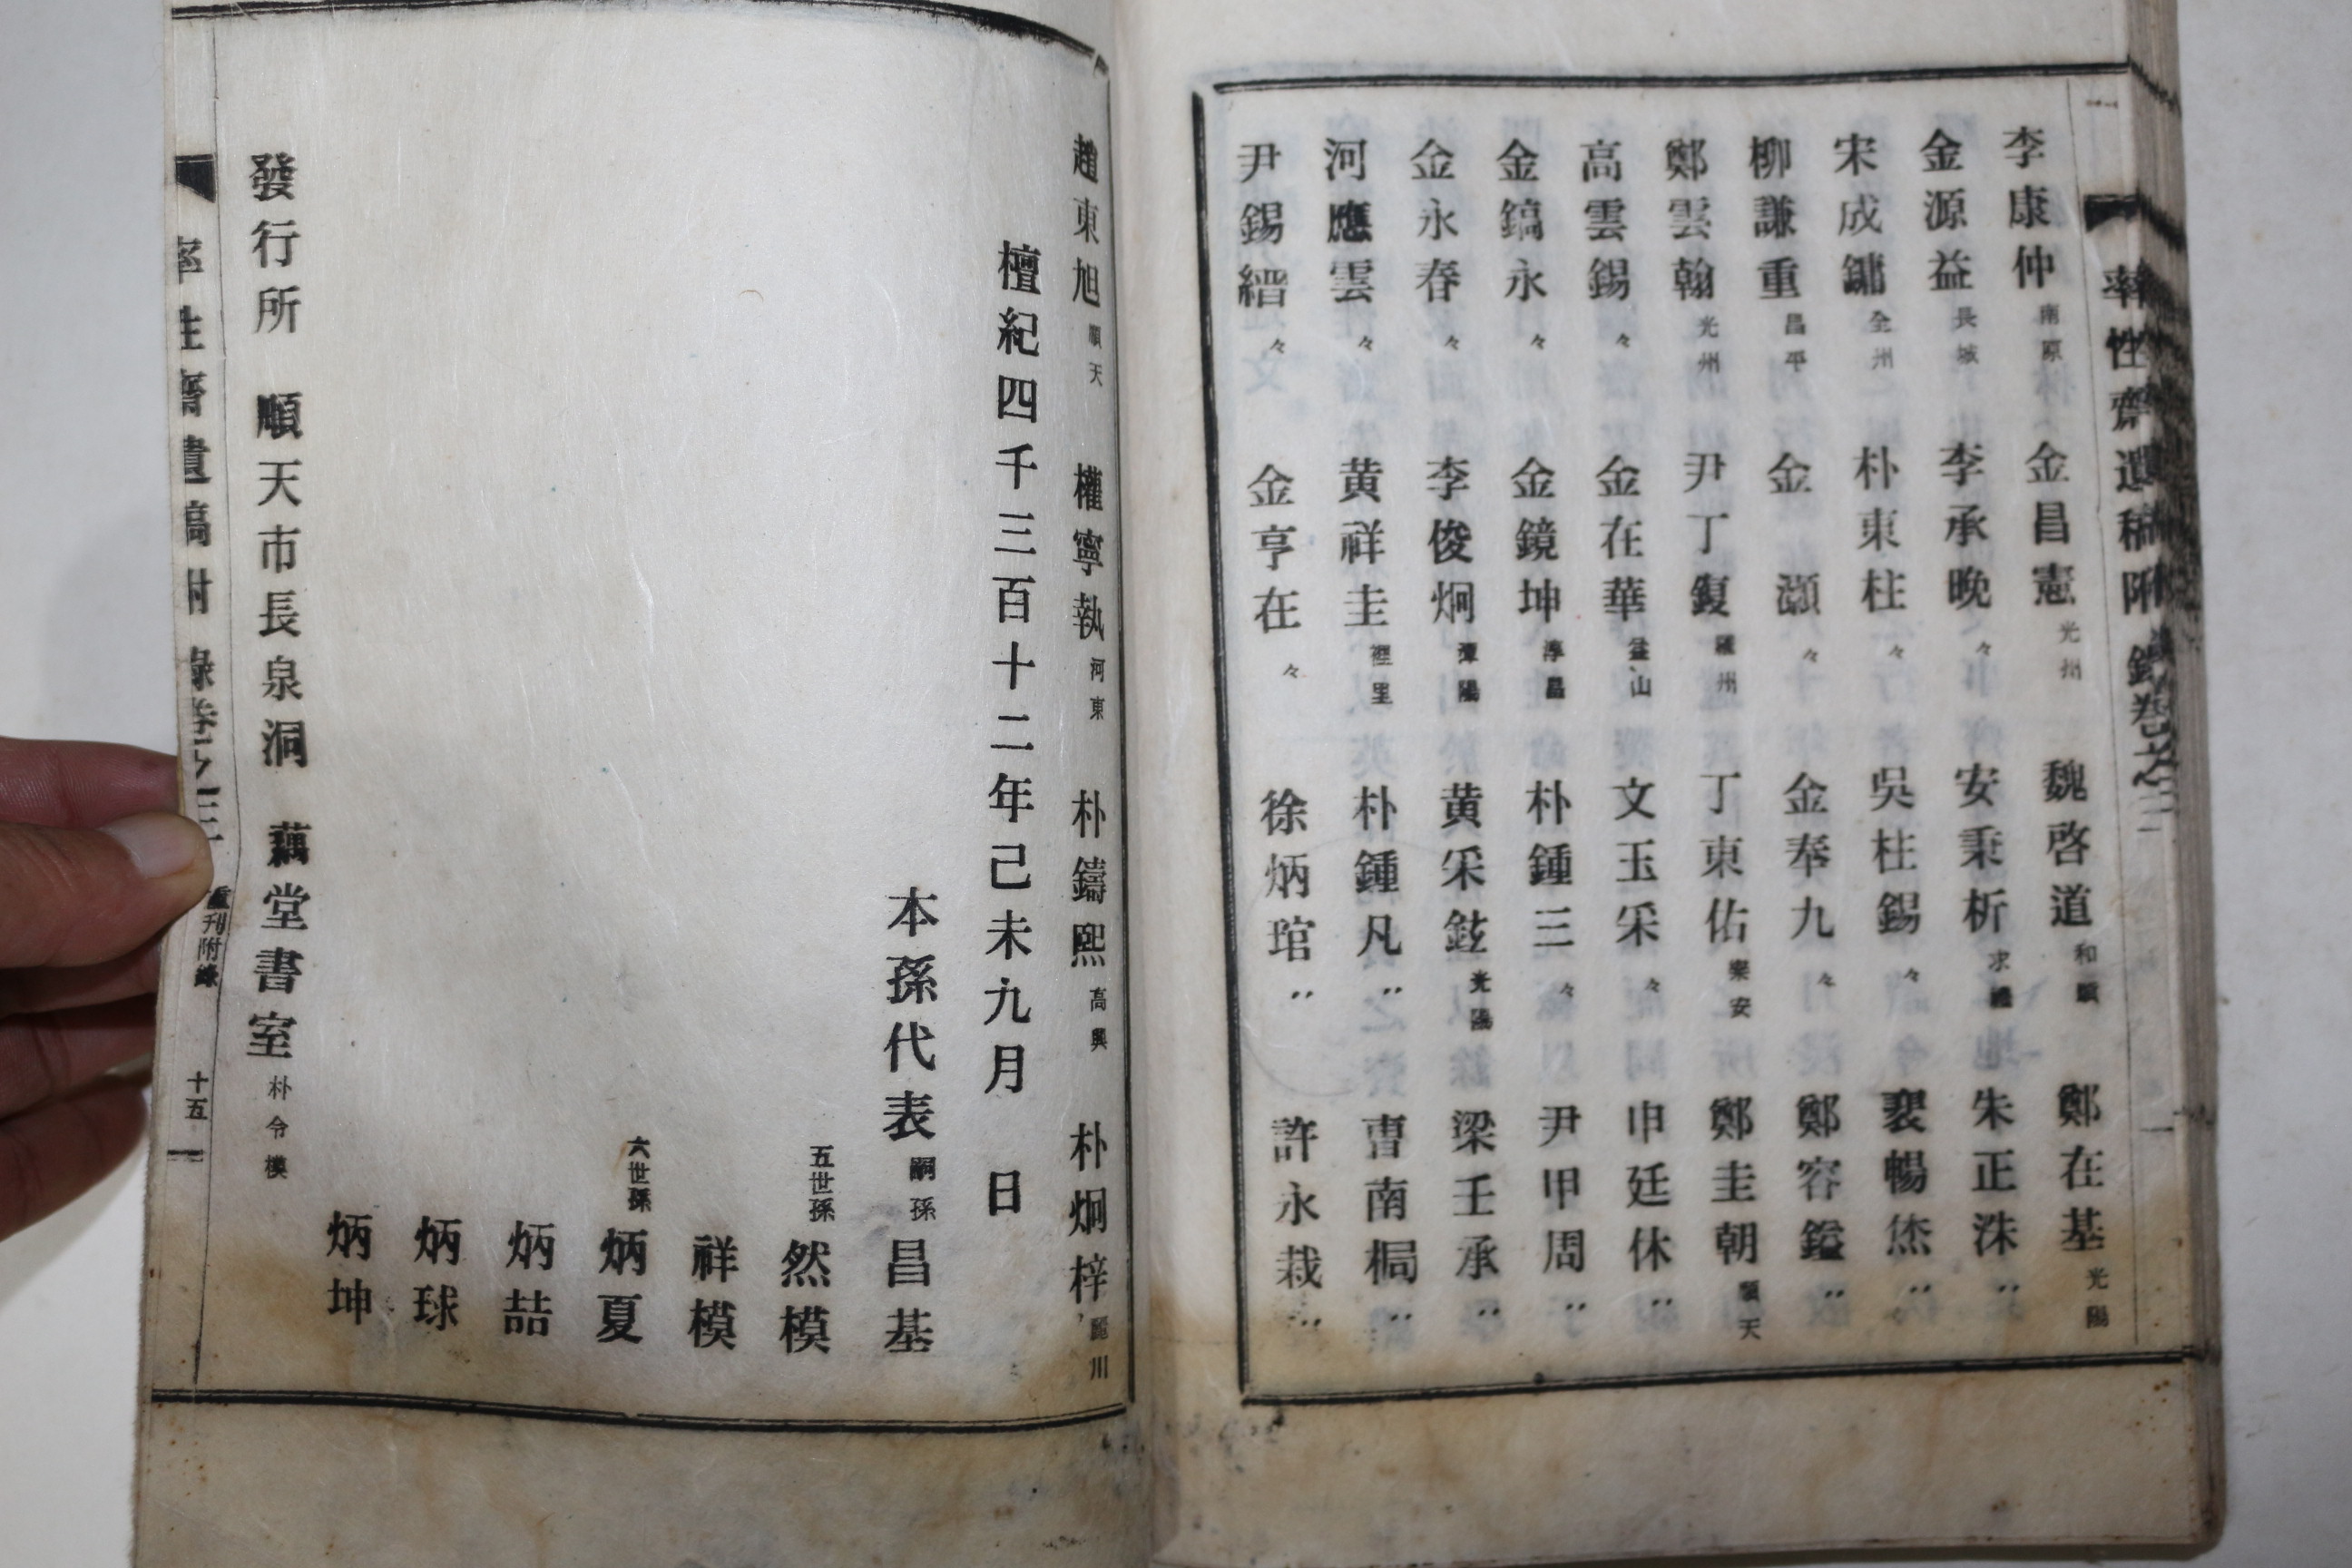 率性齋遺稿附錄卷之三
李康仲 南原 金昌憲 光州 魏啓道 和順 鄭在基 光陽
金源益 長城 李承晩 々 安秉析 求禮 朱正洙 〃
宋成鏞 全州 朴東柱 々 吳柱錫 々 裵暢烋 〃
柳謙重 昌平 金灝 々 金奉九 々 鄭容鎰 〃
鄭雲翰 光州 尹丁鍑 羅州 丁東佑 樂安 鄭圭朝 順天
高雲錫 々 金在華 益山 文玉采 々 申廷休 〃
金鎬永 々 金鏡坤 淳昌 朴鍾三 々 尹甲周 〃
金永春 々 李俊炯 潭陽 黃采鉉 光陽 梁壬承 〃
河應雲 々 黃祥圭 裡里 朴鍾凡 〃 曺南梮 〃
尹錫縉 々 金亨在 々 徐炳琯 〃 許永栽 〃
趙東旭 順天 權寧執 河東 朴鑄熙 高興 朴炯梓 麗川
檀紀四千三百十二年己未九月 日
本孫代表 嗣孫 昌基
五世孫 然模
祥模
六世孫 炳夏
炳喆
炳球
炳坤
發行所 順天市長泉洞 藕堂書室 朴令模
率性齋遺稿附錄卷之三 重刊附錄 十五